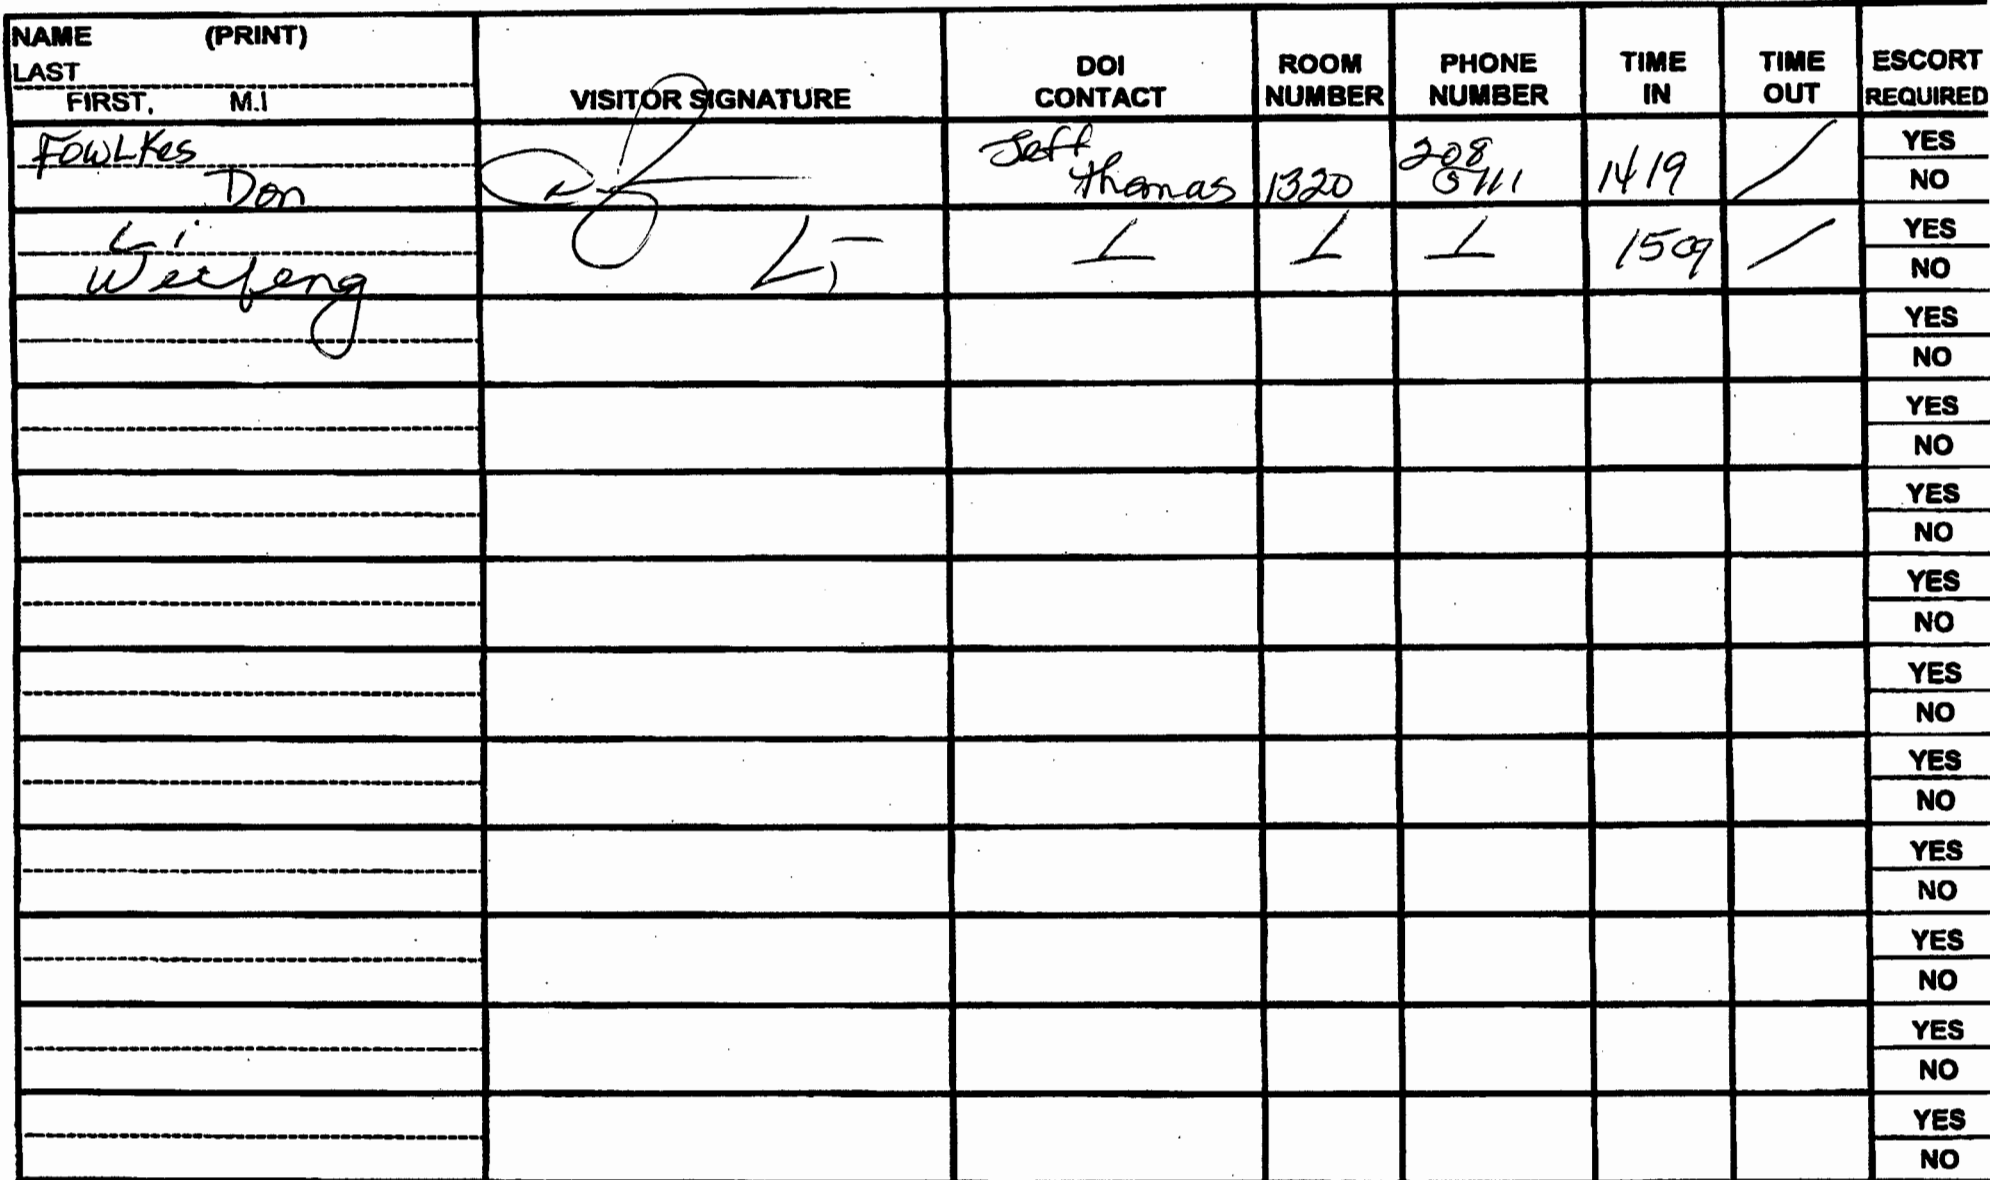 NAME (PRINT)
LAST
FIRST, M.I
VISITOR SIGNATURE
DOI
CONTACT
ROOM
NUMBER
PHONE
NUMBER
TIME
IN
TIME
OUT
ESCORT
REQUIRED
Fowlkes
Don
Jeff
Thomas
1320
208
5111
1419
YES
NO
Li
Weifeng
Li
1509
YES
NO
YES
NO
YES
NO
YES
NO
YES
NO
YES
NO
YES
NO
YES
NO
YES
NO
YES
NO
YES
NO